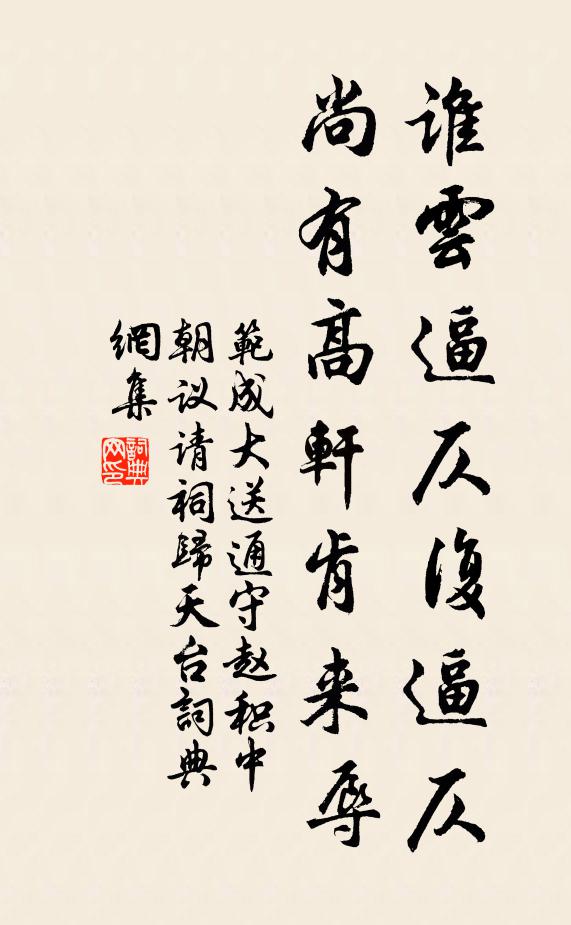 誰雲逼仄復逼仄
尚有高軒肯来辱
範成大送通守赵积中
朝议请祠歸天台詞典
網集
詞典网印